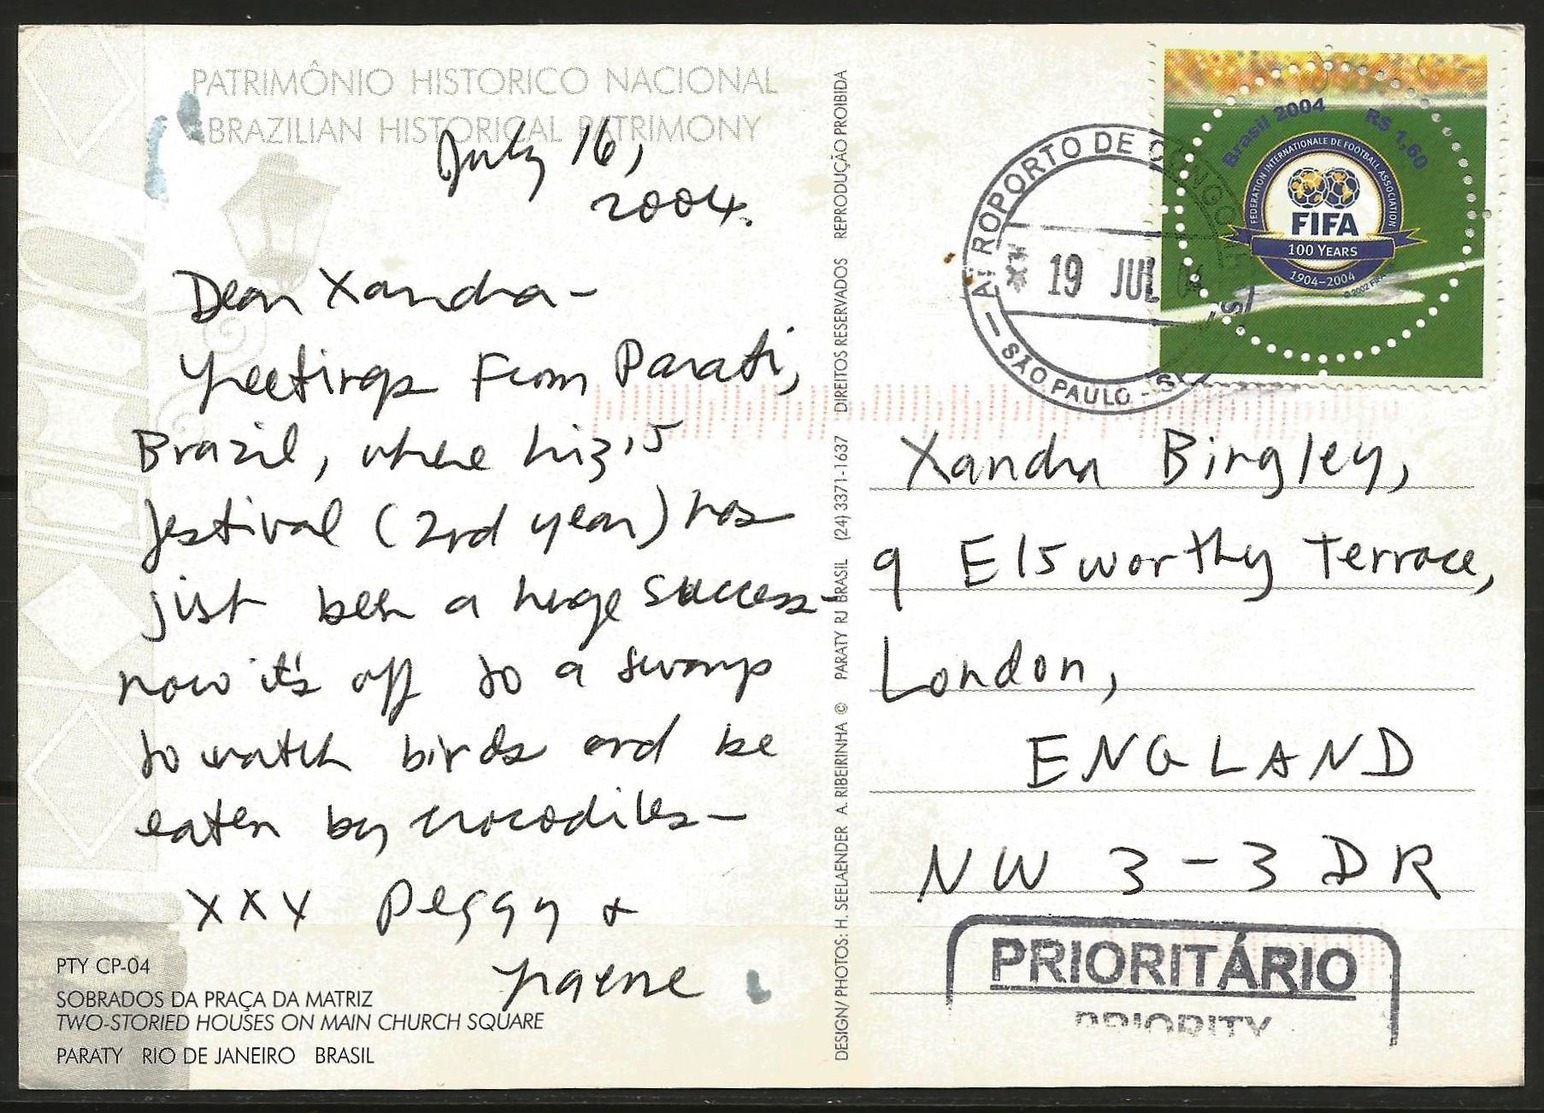 PATRIMÔNIO HISTORICO NACIONAL
BRAZILIAN HISTORICAL PATRIMONY
July 16,
2004.
Dear Xandra –
Greetings from Parati,
Brazil, where Liz's
festival (2nd year) has
just been a huge success –
now it's off to a swamp
to watch birds and be
eaten by crocodiles –
XXX Peggy &
Graeme
PTY CP-04
SOBRADOS DA PRAÇA DA MATRIZ
TWO-STORIED HOUSES ON MAIN CHURCH SQUARE
PARATY RIO DE JANEIRO BRASIL
DESIGN/ PHOTOS: H. SEELAENDER A. RIBEIRINHA © PARATY RJ BRASIL (24) 3371-1637 DIREITOS RESERVADOS REPRODUÇÃO PROIBIDA
AEROPORTO DE
19 JUL 04
SÃO PAULO - SP
Brasil 2004 R$ 1,60
FEDERATION INTERNATIONALE DE FOOTBALL ASSOCIATION
FIFA
100 YEARS
1904–2004
Xandra Bingley,
9 Elsworthy Terrace,
London,
ENGLAND
NW 3 – 3 DR
PRIORITÁRIO
PRIORITY